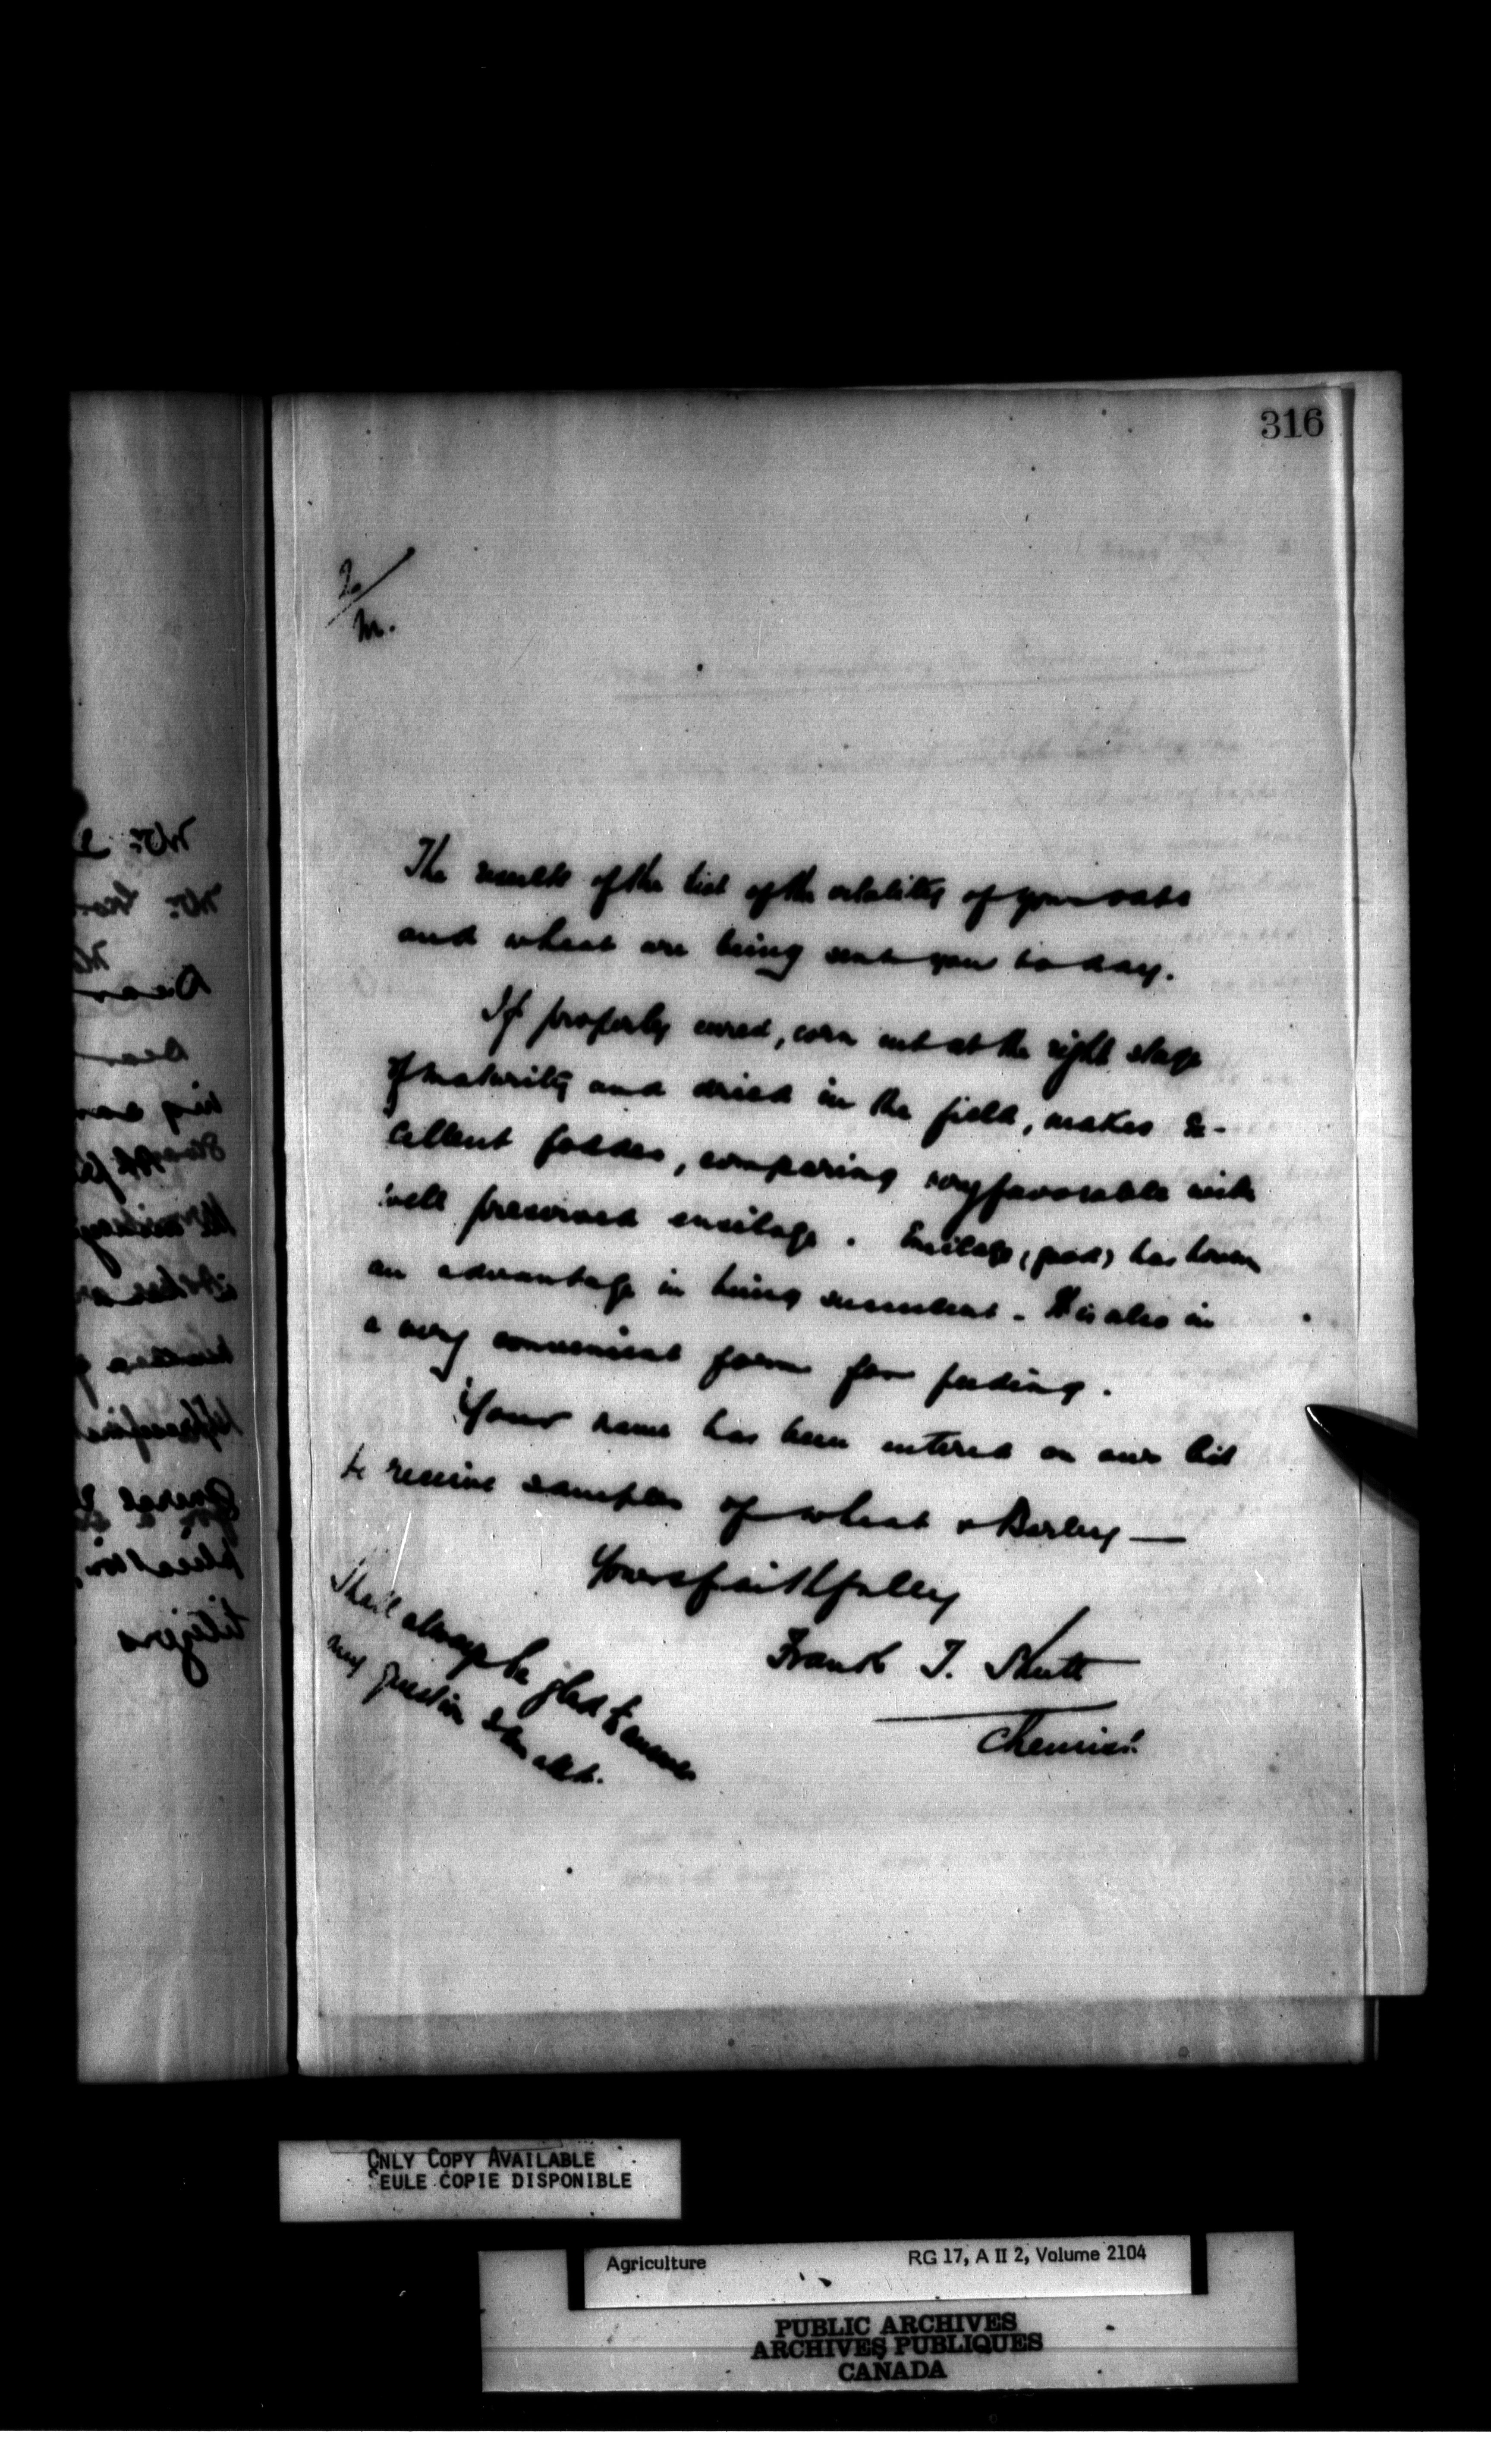 316
2/
m.
The results of the test of the vitality of your oats
and wheat are being sent you to day.
If properly cured, corn cut at the right stage
of maturity and dried in the field, makes ex-
cellent fodder, comparing very favorable with
well preserved ensilage. Ensilage (good) has however
an advantage in being succulent - It is also in
a very convenient form for feeding.
Your name has been entered on our list
to receive samples of wheat & Barley —
Yours faithfully
Frank T. Shutt
Chemist.
Shall always be glad to answer
any question I am able.
ONLY COPY AVAILABLE
SEULE COPIE DISPONIBLE
Agriculture RG 17, A II 2, Volume 2104
PUBLIC ARCHIVES
ARCHIVES PUBLIQUES
CANADA